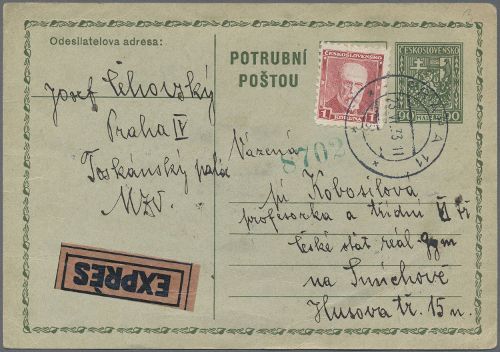 Odesílatelova adresa:
Josef Čihovský
Praha IV
Toskánský palác
MZV.
EXPRÈS
POTRUBNÍ
POŠTOU
ČESKOSLOVENSKO
1 KORUNA 1
ČESKOSLOVENSKO
90 HALÉŘŮ 90
PRAHA 11
8702
Vážená
pí Kobosilova
profesorka a třídní
České stát reál gym
na Smíchově
Husova tř. 15 n.